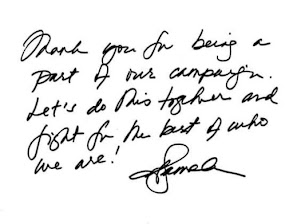 Thank you for being a
part of our campaign.
Let's do this together and
fight for the best of who
we are!
Kamala